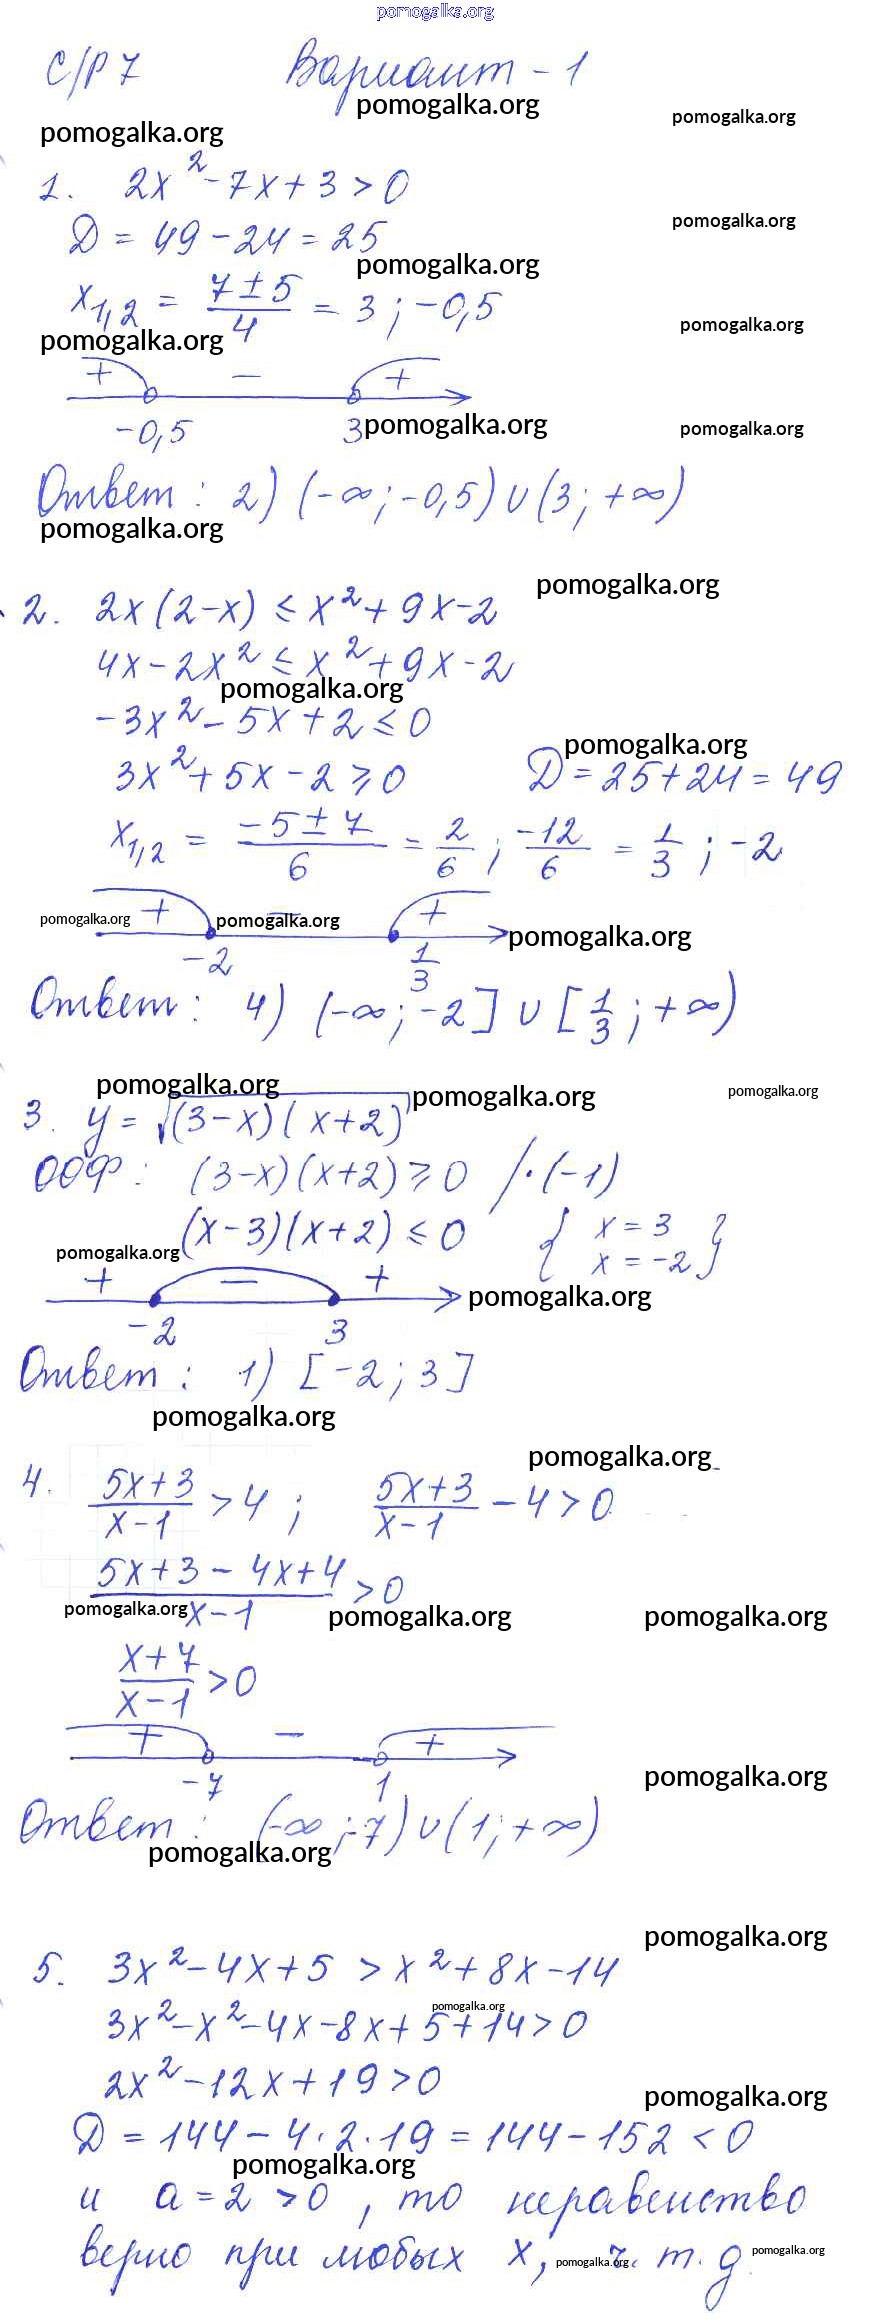 pomogalka.org
С/Р 7 Вариант - 1
pomogalka.org
pomogalka.org
pomogalka.org
1. 2x² - 7x + 3 > 0
pomogalka.org
Д = 49 - 24 = 25
pomogalka.org
x₁,₂ = (7 ± 5)/4 = 3 ; -0,5
pomogalka.org
pomogalka.org
+ - +
-0,5 3
pomogalka.org
pomogalka.org
Ответ : 2) (-∞; -0,5) ∪ (3; +∞)
pomogalka.org
pomogalka.org
2. 2x (2-x) ≤ x² + 9x - 2
4x - 2x² ≤ x² + 9x - 2
pomogalka.org
-3x² - 5x + 2 ≤ 0
pomogalka.org
3x² + 5x - 2 ⩾ 0 Д = 25 + 24 = 49
x₁,₂ = (-5 ± 7)/6 = 2/6 ; -12/6 = 1/3 ; -2
+ - +
pomogalka.org pomogalka.org pomogalka.org
-2 1/3
Ответ : 4) (-∞; -2] ∪ [1/3; +∞)
pomogalka.org pomogalka.org pomogalka.org
3. y = √(3-x)(x+2)
ООФ : (3-x)(x+2) ⩾ 0 /·(-1)
(x-3)(x+2) ≤ 0 { x = 3
x = -2 }
pomogalka.org
+ - +
pomogalka.org
-2 3
Ответ : 1) [-2; 3]
pomogalka.org
pomogalka.org
4. (5x+3)/(x-1) > 4 ; (5x+3)/(x-1) - 4 > 0
(5x+3 - 4x+4)/(x-1) > 0
pomogalka.org pomogalka.org pomogalka.org
(x+7)/(x-1) > 0
+ - +
-7 1
pomogalka.org
Ответ : (-∞; -7) ∪ (1; +∞)
pomogalka.org
pomogalka.org
5. 3x² - 4x + 5 > x² + 8x - 14
pomogalka.org
3x² - x² - 4x - 8x + 5 + 14 > 0
2x² - 12x + 19 > 0
pomogalka.org
Д = 144 - 4·2·19 = 144 - 152 < 0
pomogalka.org
и a = 2 > 0 , то неравенство
верно при любых x, ч. т. д.
pomogalka.org pomogalka.org